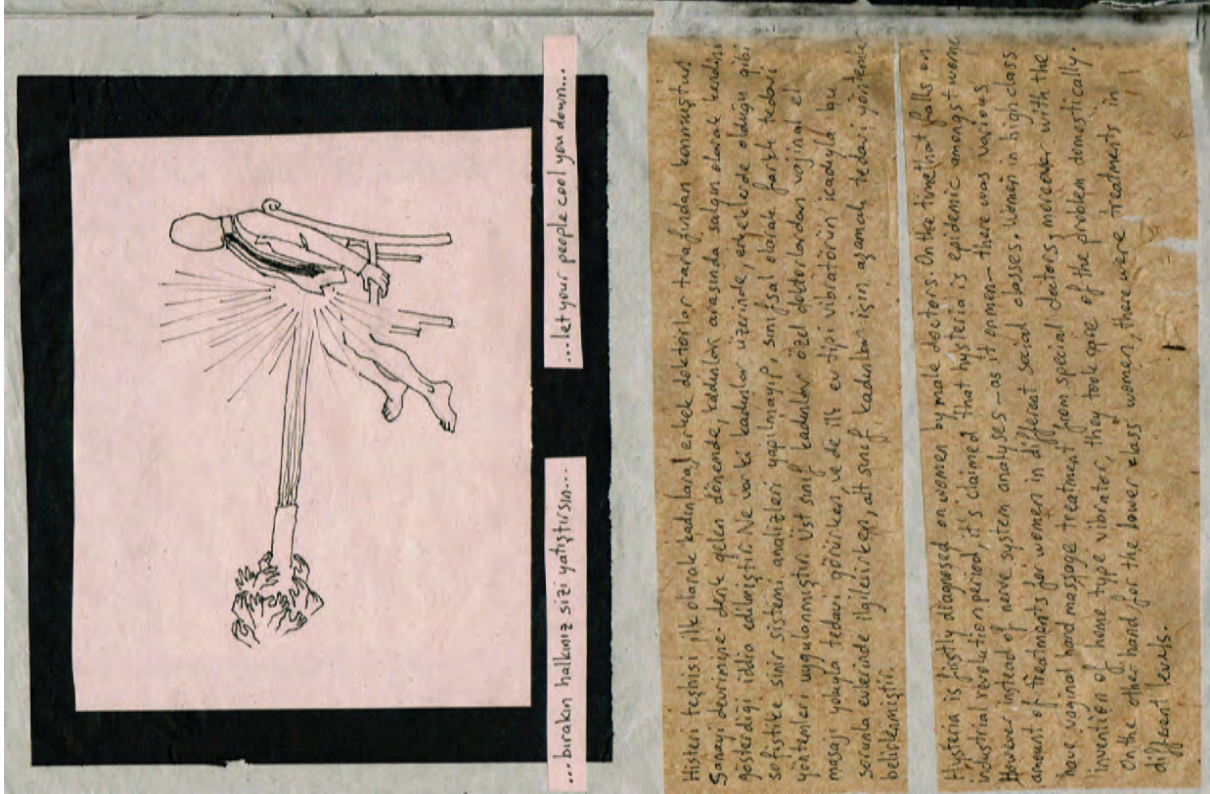 ...bırakın halkınız sizi yatıştırsın...
...let your people cool you down...
Histeri teşhisi ilk olarak kadınlara, erkek doktorlar tarafından konmuştur.
Sanayi devrimine denk gelen dönemde, kadınlar arasında salgın olarak kendini
gösterdiği iddia edilmiştir. Ne var ki kadınlar üzerinde, erkeklerde olduğu gibi
sofistike sinir sistemi analizleri yapılmayıp, sınıfsal olarak farklı tedavi
yöntemleri uygulanmıştır. Üst sınıf kadınlar özel doktorlardan vajinal el
masajı yoluyla tedavi görürken, ve de ilk ev tipi vibratörün icadıyla bu
sorunla evlerinde ilgilenirken, alt sınıf kadınlar için aşamalı tedavi yöntemle
belirlenmiştir.
Hysteria is firstly diagnosed on women by male doctors. On the time that falls on
industrial revolution period, it's claimed that hysteria is epidemic amongst wome
However instead of nerve system analyses - as it on men - there was various
amount of treatments for women in different social classes. Women in high class
have vaginal hand massage treatment from special doctors, moreover with the
invention of home type vibrator, they took care of the problem domestically.
On the other hand for the lower class women, there were treatments in
different levels.